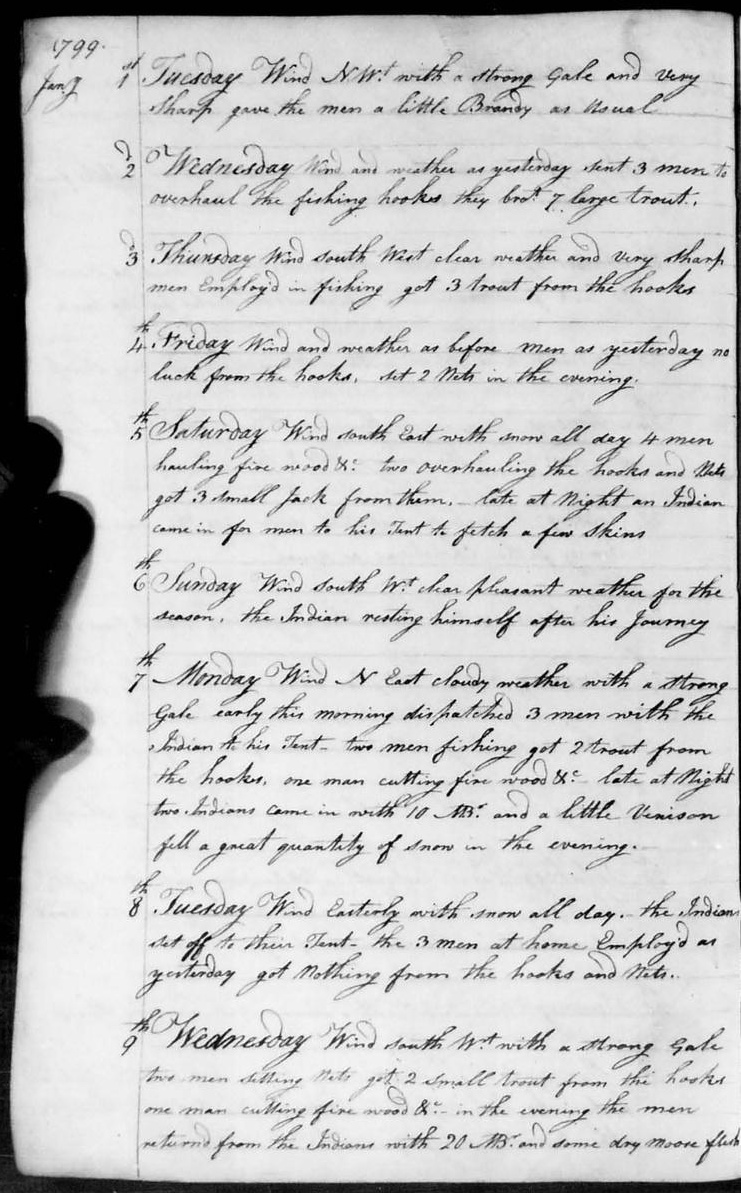 1799.
Jan.y 1st Tuesday Wind N.W.t with a strong Gale and very
sharp gave the men a little Brandy as Usual
2d Wednesday Wind and weather as yesterday sent 3 men to
overhaul the fishing hooks they bro.t 7 large trout.
3d Thursday Wind south West clear weather and very sharp
men Employ'd in fishing got 3 trout from the hooks
4th Friday Wind and weather as before men as yesterday no
luck from the hooks, set 2 Nets in the evening.
5th Saturday Wind south East with snow all day 4 men
hauling fire wood &c. two overhauling the hooks and Nets
got 3 small Jack from them. late at Night an Indian
came in for men to his Tent to fetch a few skins
6th Sunday Wind south W.t clear pleasant weather for the
season, the Indian resting himself after his Journey
7th Monday Wind N East cloudy weather with a strong
Gale early this morning dispatched 3 men with the
Indian to his Tent - two men fishing got 2 trout from
the hooks, one man cutting fire wood &c - late at Night
two Indians came in with 10 MBr. and a little Venison
fell a great quantity of snow in the evening.
8th Tuesday Wind Easterly with snow all day. - the Indians
set off to their Tent - the 3 men at home Employ'd as
yesterday got Nothing from the hooks and Nets.
9th Wednesday Wind south W.t with a strong Gale
two men setting Nets got 2 small trout from the hooks
one man cutting fire wood &c - in the evening the men
return'd from the Indians with 20 MBr. and some dry moose flesh